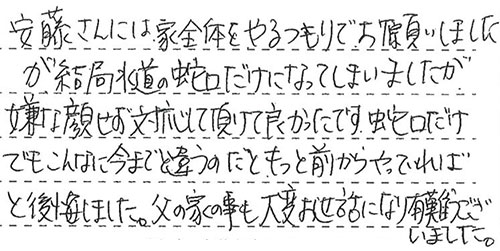 安藤さんには家全体をやるつもりでお願いしました
が結局水道の蛇口だけになってしまいましたが
嫌な顔せず対応して頂けて良かったです。蛇口だけ
でもこんなに今までと違うのだともっと前からやっていれば
と後悔しました。父の家の事も大変お世話になり有難うござ
いました。